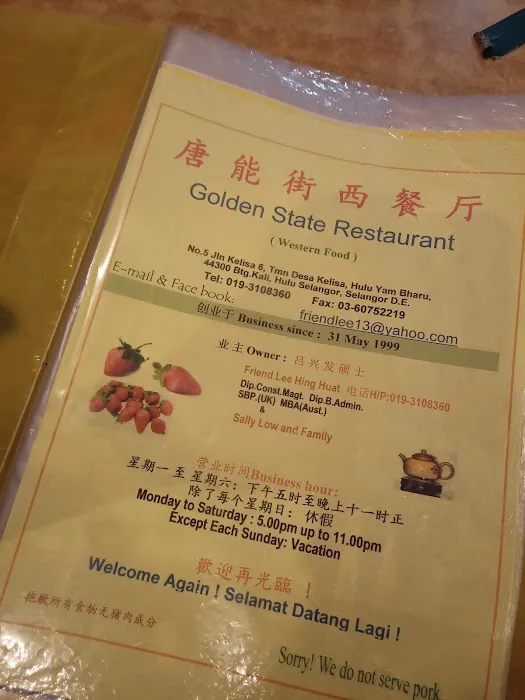 唐能街西餐厅
Golden State Restaurant
( Western Food )
No.5 Jln Kelisa 6, Tmn Desa Kelisa, Hulu Yam Bharu,
44300 Btg.Kali, Hulu Selangor, Selangor D.E.
Tel: 019-3108360 Fax: 03-60752219
E-mail & Face book: friendlee13@yahoo.com
创业于 Business since : 31 May 1999
业主 Owner : 吕兴发硕士
Friend Lee Hing Huat 电话H/P:019-3108360
Dip.Const.Magt. Dip.B.Admin.
SBP.(UK) MBA(Aust.)
&
Sally Low and Family
营业时间Business hour:
星期一 至 星期六: 下午五时至晚上十一时正
除了每个星期日: 休假
Monday to Saturday : 5.00pm up to 11.00pm
Except Each Sunday: Vacation
歡迎再光臨 !
Welcome Again ! Selamat Datang Lagi !
抱歉所有食物无猪肉成分
Sorry! We do not serve pork